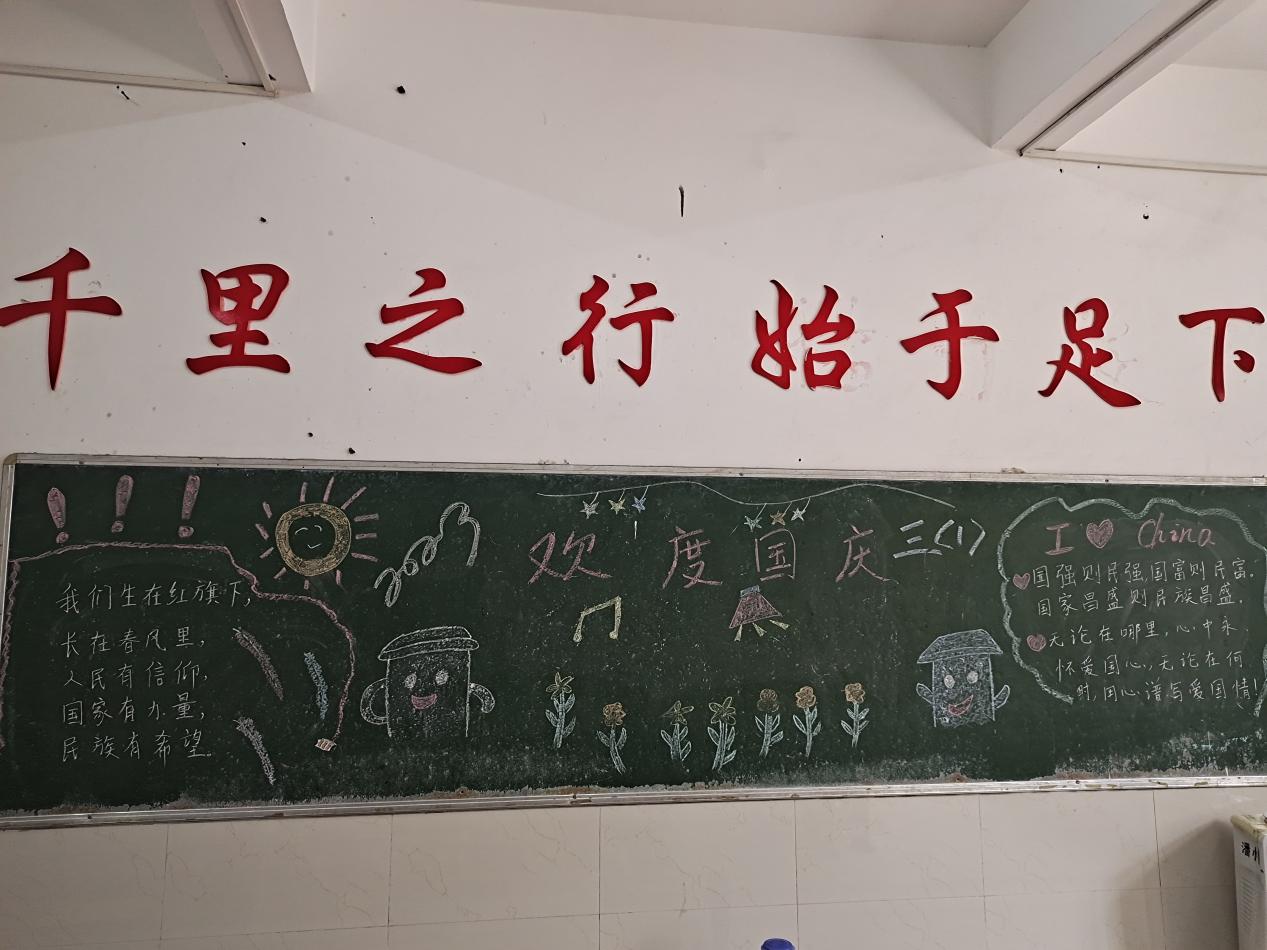 千里之行始于足下
欢度国庆
三(1)
2023
我们生在红旗下,
长在春风里,
人民有信仰,
国家有力量,
民族有希望.
I ❤ China
国强则民强,国富则民富.
国家昌盛则民族昌盛.
无论在哪里,心中永
怀爱国心,无论在何
时,用心谱写爱国情!